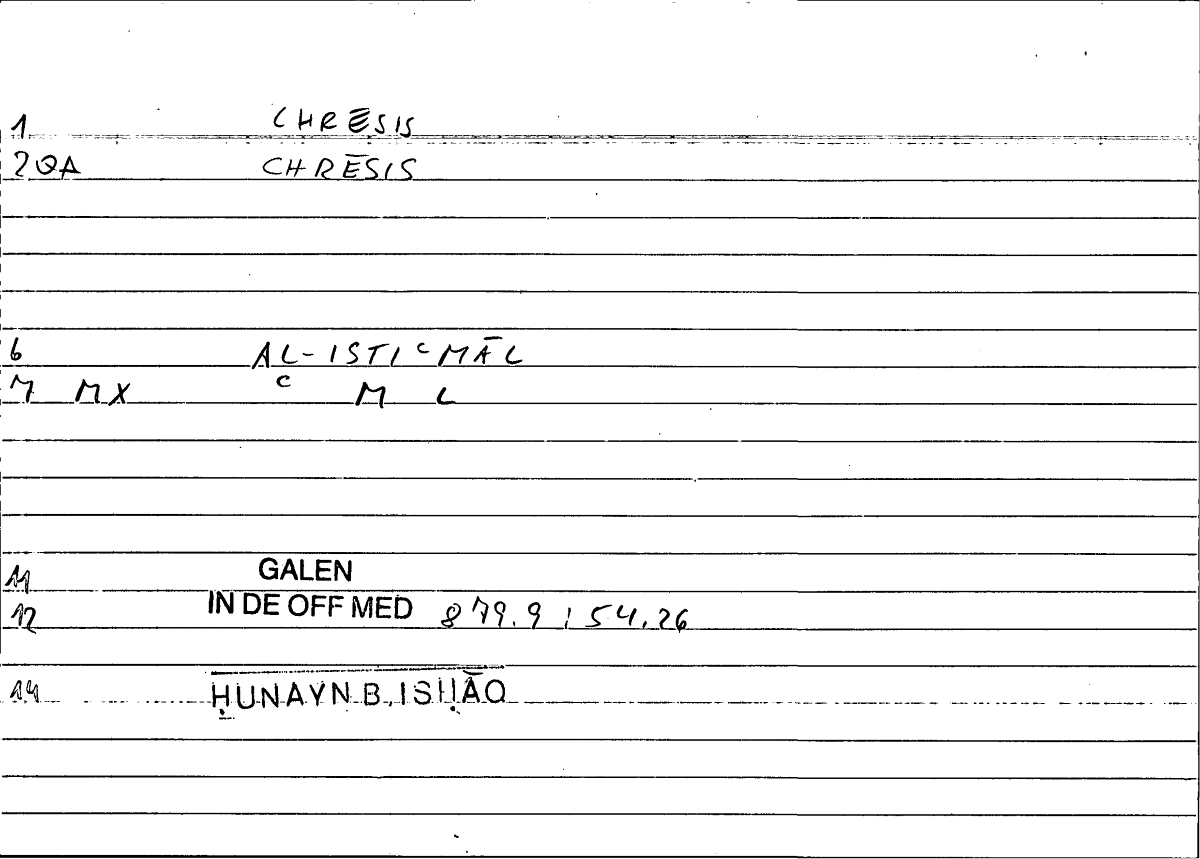 1 CHRĒSIS
2 QA CHRĒSIS
6 AL-ISTIᶜMĀL
7 MX ᶜ M L
11 GALEN
12 IN DE OFF MED 879.9 ; 54.26
14 ḤUNAYN B. ISḤĀQ